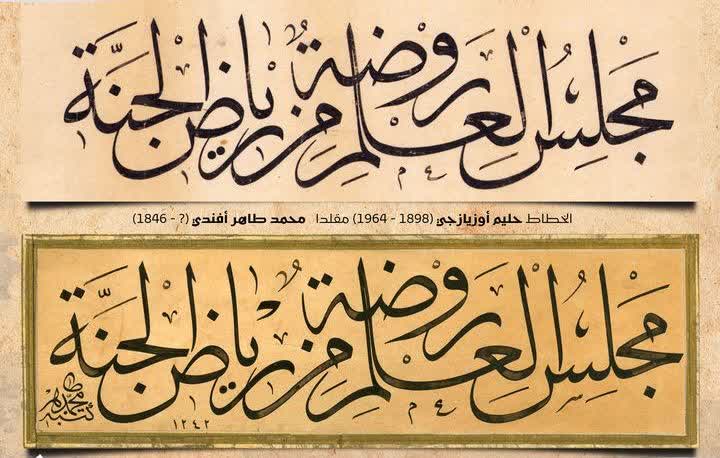 مجلس العلم روضة من رياض الجنة
الخطاط حليم أوزيازجي (1898 - 1964) مقلدا محمد طاهر أفندي (? - 1846)
مجلس العلم روضة من رياض الجنة
كتبه محمد طاهر
١٢٤٢